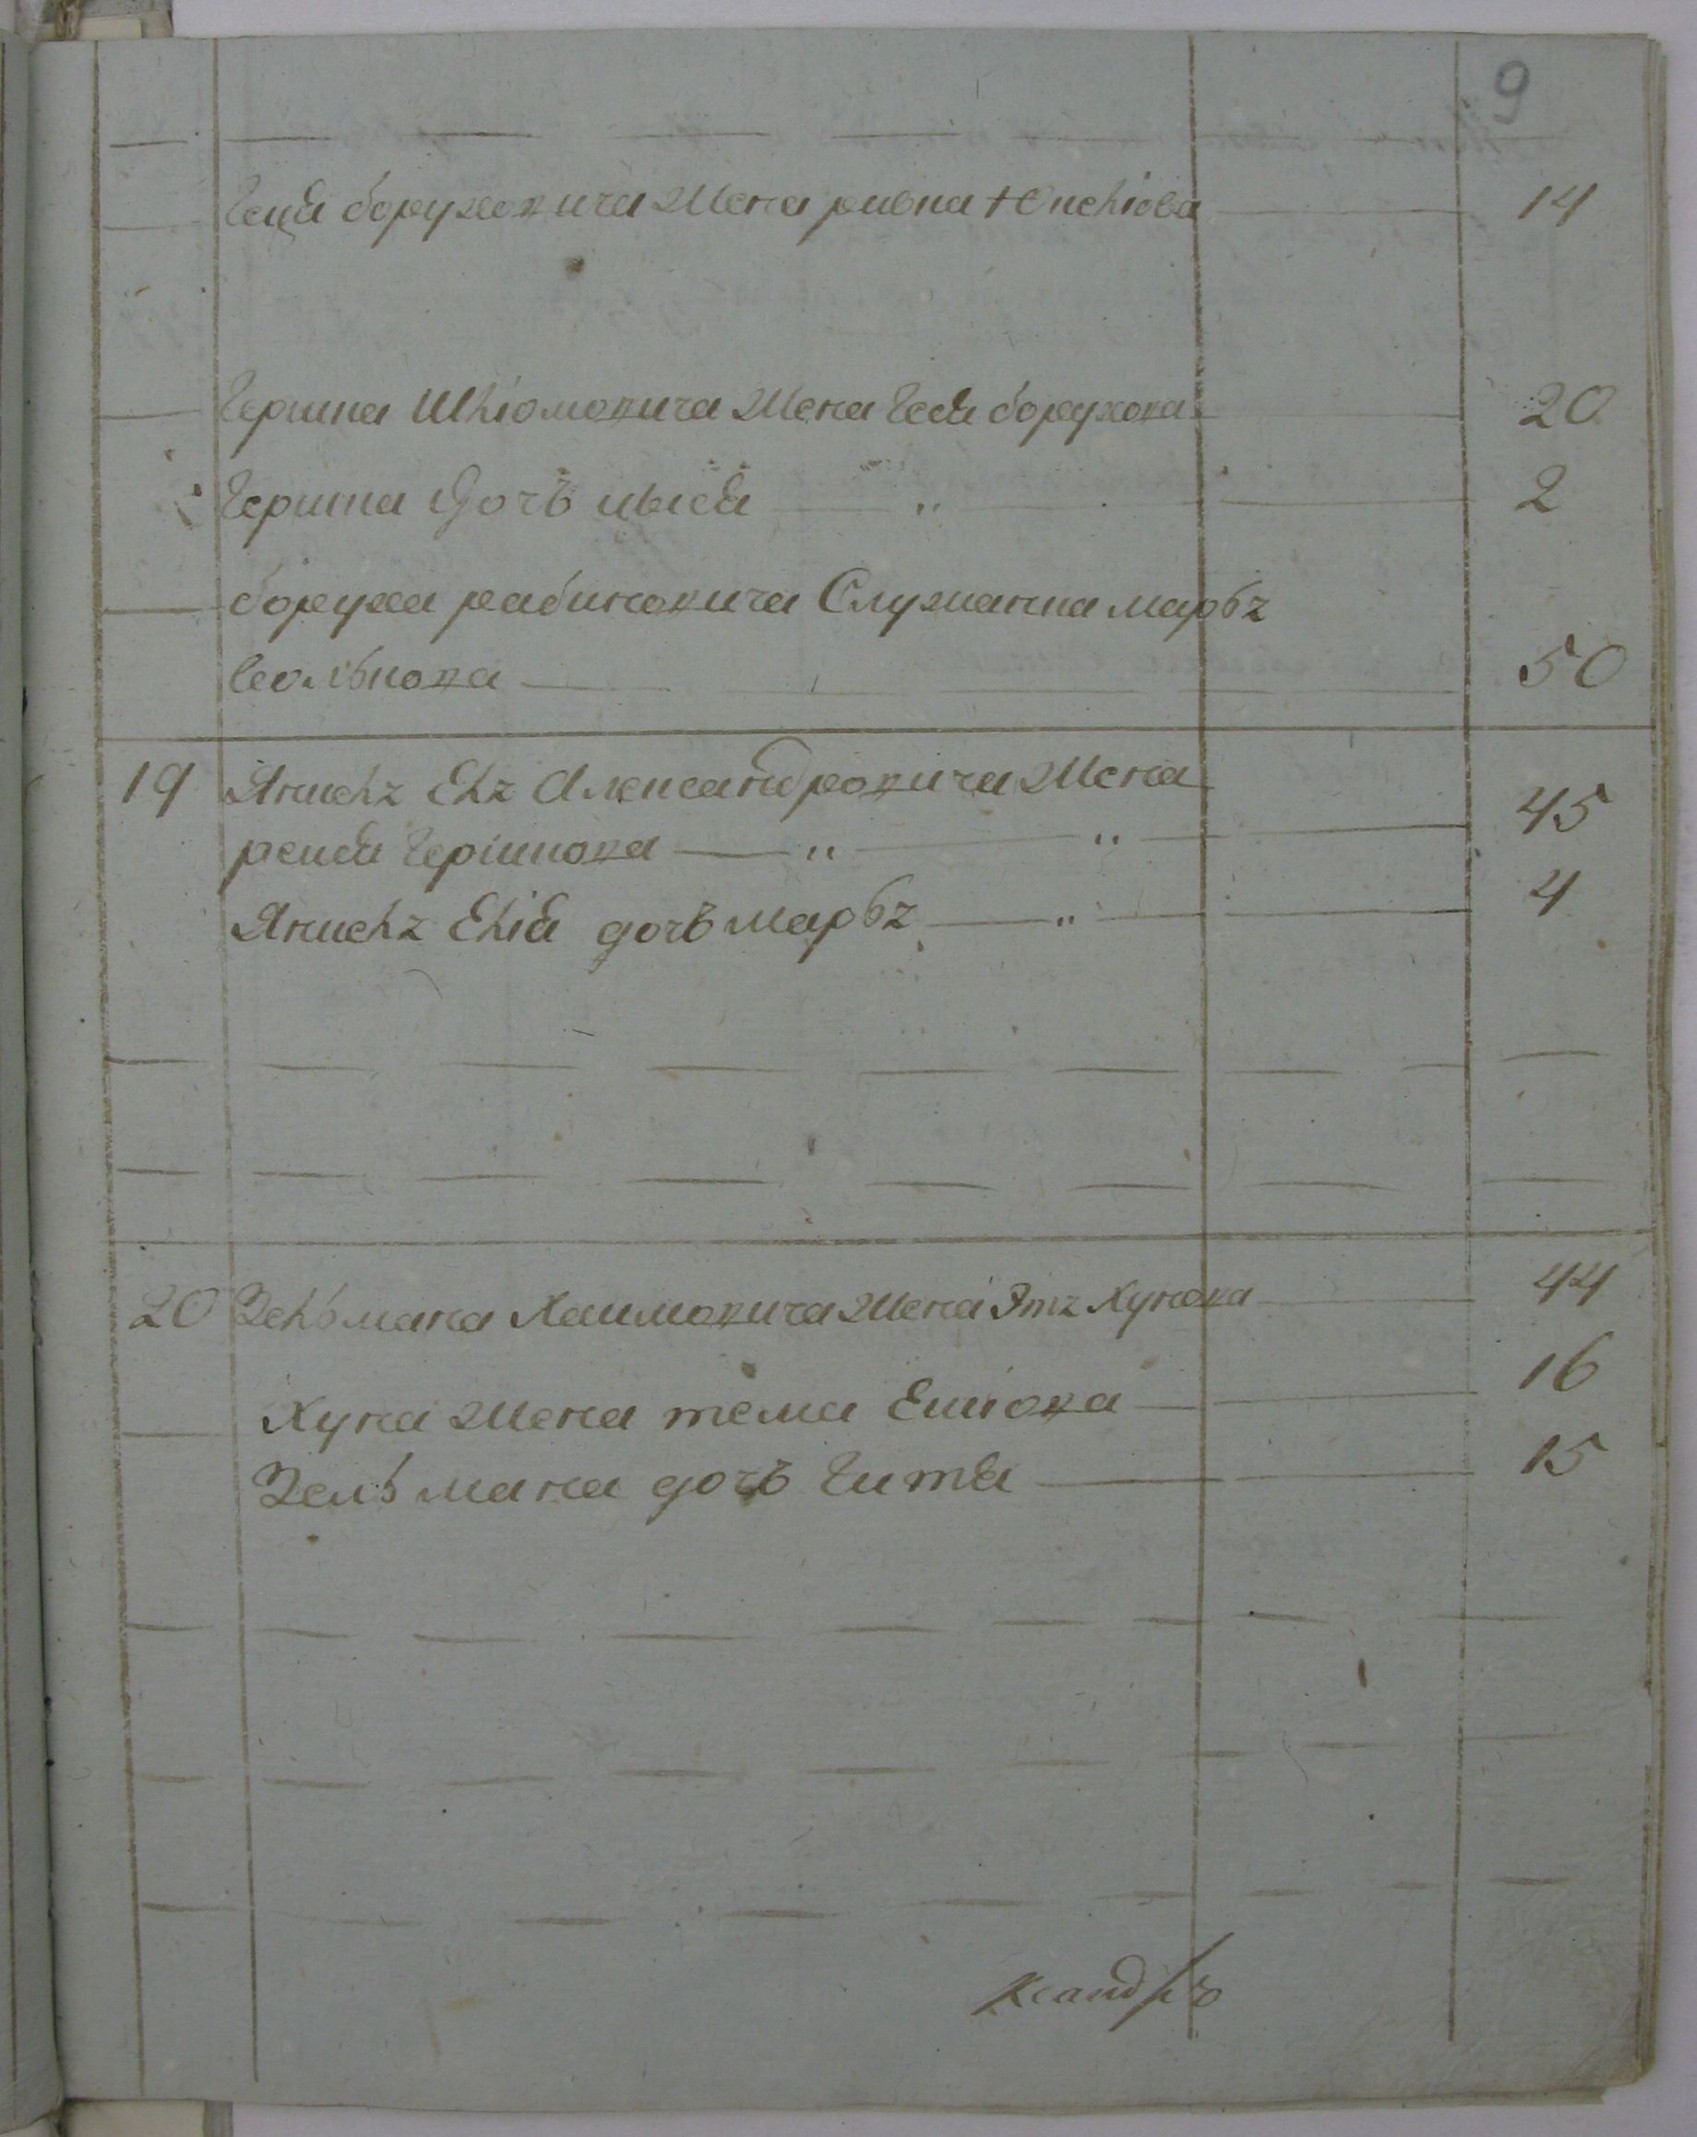 9
боруховича жена ривка 14
Гершка Шліомовича жена Геся борухова 20
Гершка дочь 2
боруха рабиновича Служанка марья
50
19 Янкеля Александровича жена
рейся Гершкова „ „ 45
Янкеля дочь марья „ 4
20 Зельмана Хаимовича жена Этя Хунова 44
Хуна жена тема 16
Зельмана дочь Гитя 15